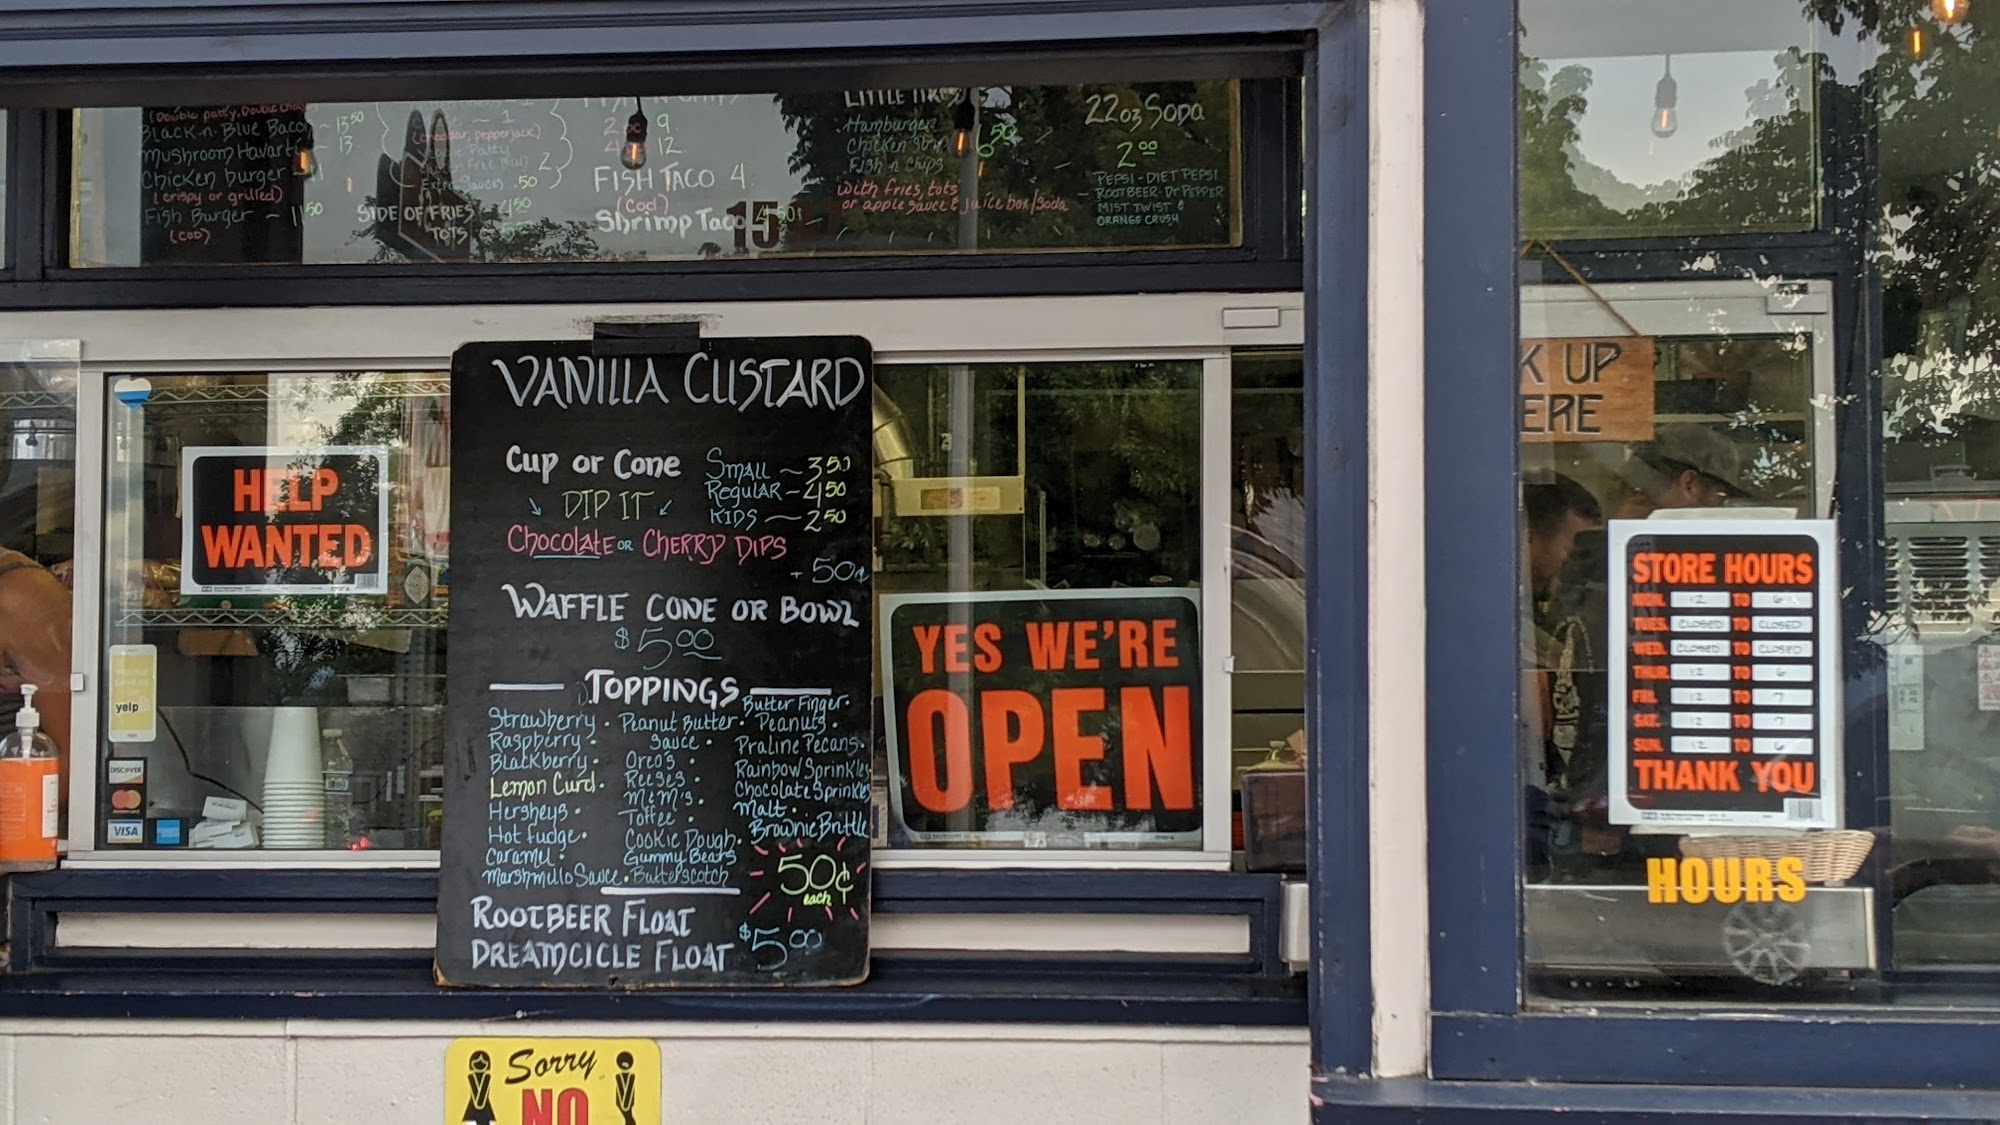 (Double patty, Double Cheese)
Black n Blue Bacon ~ 13 50
Mushroom Havarti ~ 13
Chicken burger
(crispy or grilled)
Fish Burger ~ 11 50
(COD)
~ 1
(cheddar, pepperjack)
Patty
2
Extra Sauces .50
SIDE OF FRIES ~ 4 50
TOTS
2 9
12
FISH TACO 4
(Cod)
Shrimp Taco 4 50
15
LITTLE
Hamburger
Chicken Strip 6 50
Fish n Chips
with fries, tots
or apple sauce & juice box/soda
22oz SODA
2 00
PEPSI - DIET PEPSI
ROOTBEER - DR PEPPER
MIST TWIST &
ORANGE CRUSH
K UP
ERE
HELP
WANTED
yelp
DISCOVER
VISA
VANILLA CUSTARD
Cup or Cone
DIP IT
SMALL ~ 3 50
REGULAR - 4 50
KIDS ~ 2 50
Chocolate OR CHERRY DIPS
+ 50¢
WAFFLE CONE OR BOWL
$5.00
TOPPINGS
Strawberry •
Raspberry •
Blackberry •
Lemon Curd •
Hersheys •
Hot fudge •
Caramel •
Marshmello Sauce •
Peanut Butter •
Sauce •
Oreo's •
Reeses •
M&M's •
Toffee •
Cookie Dough •
Gummy Bears
Butterscotch
Butter Finger •
Peanuts •
Praline Pecans •
Rainbow Sprinkles
Chocolate Sprinkles
Malt •
Brownie Brittle
50¢
each
ROOTBEER FLOAT
DREAMCICLE FLOAT
$5 00
YES WE'RE
OPEN
STORE HOURS
MON. 12 TO 6
TUES. CLOSED TO CLOSED
WED. CLOSED TO CLOSED
THUR. 12 TO 6
FRI. 12 TO 7
SAT. 12 TO 7
SUN. 12 TO 6
THANK YOU
HOURS
Sorry
NO